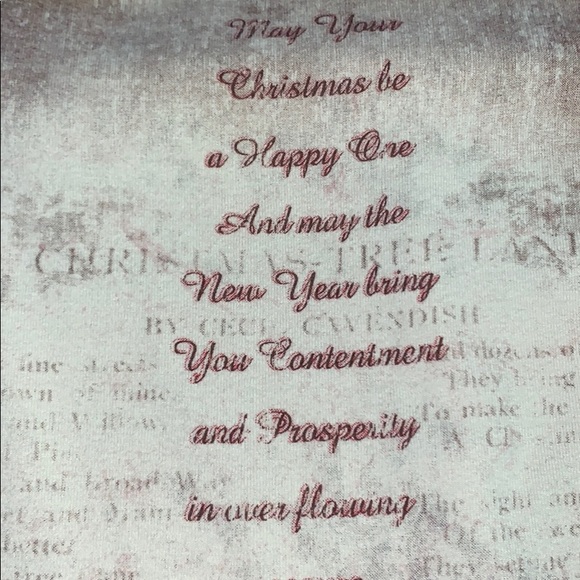 May Your
Christmas be
a Happy One
And may the
New Year bring
You Contentment
and Prosperity
in over flowing
CHRISTMAS-TREE LAN
BY CECIL CAVENDISH
fine streets
own of mine
and Willow,
Pin
and Broad Way
and
better
tree
d dozens o
They bring
To make the
A
The sight an
Of the we
They